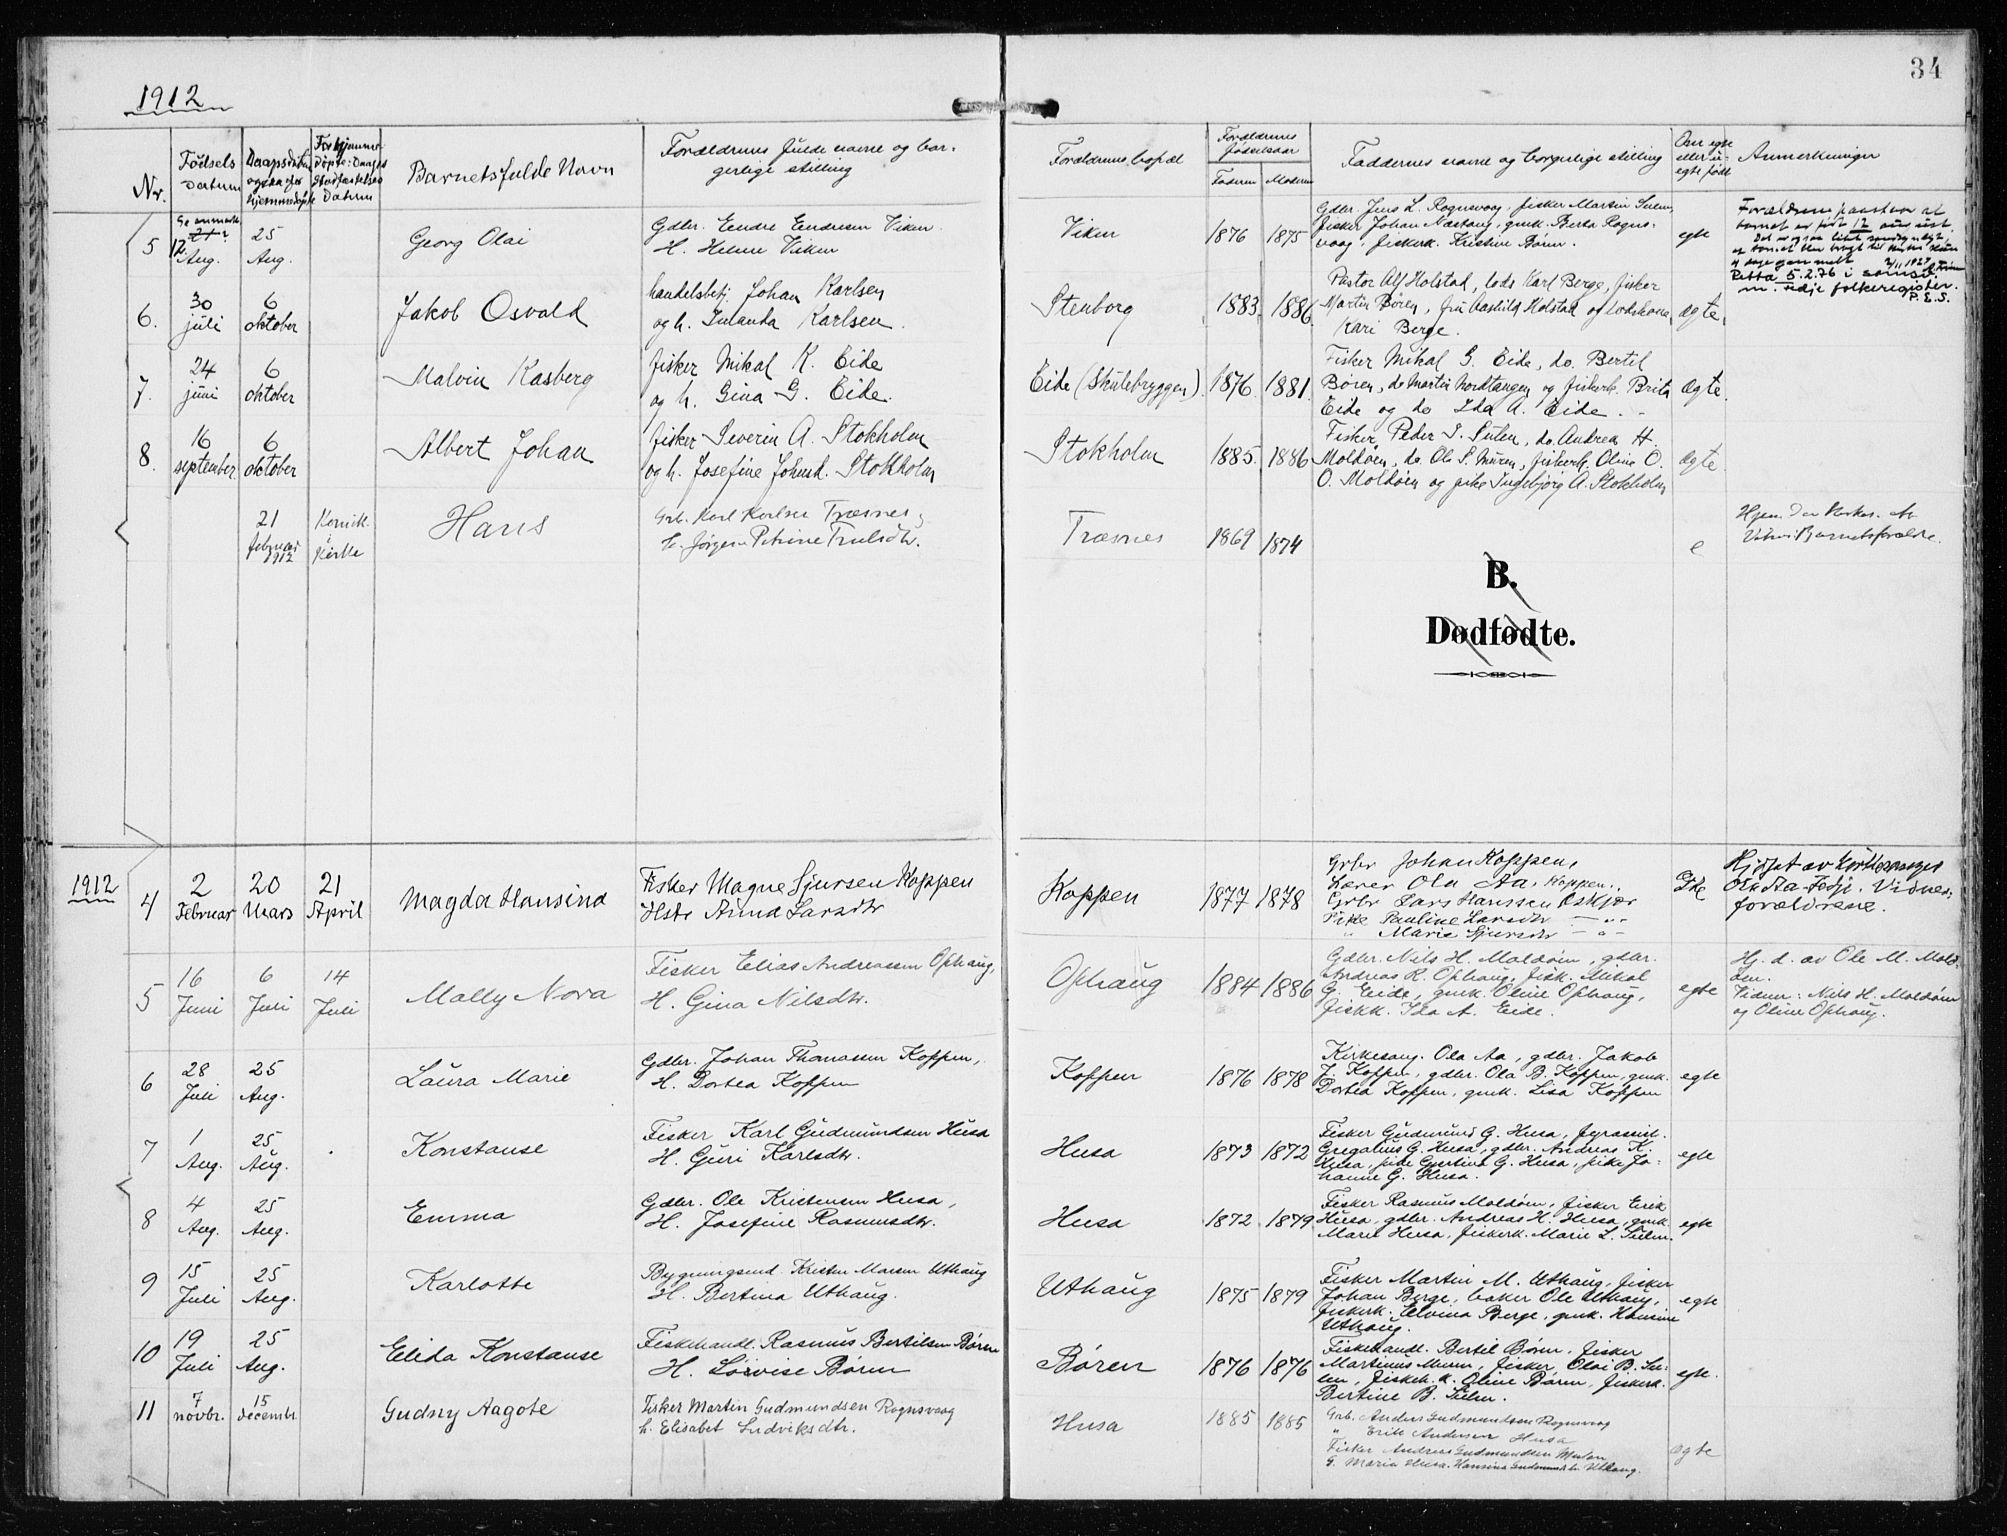 34
1912
Nr.
Fødsels datum
Daapsdatum
Datum
Barnets fulde Navn
Forældrenes fulde navne og borgerlige stilling
Forældrenes bopæl
Forældrenes fødselsaar
Faderen Moderen
Faddernes navne og borgerlige stilling
Om egte eller uegte født
Anmerkninger
5 12 Aug. 25 Aug. Georg Olai
Gdbr. Endre Endresen Viken
H. Helene Viken
Viken 1876 1875
Gdbr. Jens L. Rognsvaag, fisker Martin Sulen,
fisker Johan Nastang, gmk. Berta Rogns-
vaag, fiskerk. Kristine Børen.
egte
Forældrene paastaar at
barnet er født 12 aug
Retta 5.2.76 i samsvar
m. Fedje folkeregister.
P.E.S.
6. 30 juli 6 oktober Jakob Osvald
handelsbetj. Johan Karlsen
og h. Karlsen.
Stenborg 1883. 1886.
Pastor Alf Holstad, lods Karl Berge, fisker
Martin Børen, fru Aashild Holstad og lodskone
Kari Berge.
ægte.
7. 24 juni 6 oktober Malvin Kasberg
fisker Mikal K. Eide
og h. Gina G. Eide.
Eide (Skulebryggen). 1876. 1881.
Fisker Mikal G. Eide, do. Bertel
Børen, do Martin Nordtangen og fiskerk. Brita
Eide og do Ida A. Eide.
ægte.
8. 16 september. 6 oktober Albert Johan
fisker Severin A. Stokholm
og h. Josefine Johnsd. Stokholm
Stokholm 1885. 1886.
Fisker Peder S. Sulen, do. Andrea H.
Moldøen, do. Ole S. Muren, fiskerk. Oline O.
O. Moldøen og pike Ingebjørg A. Stokholm
ægte.
21 februar 1912 Kirke Hans
Grb. Karl Karlsen Træsnes,
h. Jørgen Petrine Trulsdtr.
Træsnes 1869 1874
e
B.
Dødfødte.
1912
4 2 Februar 20 Mars 21 April Magda Hansina
Fisker Magne Sjursen Koppen
Hstr Anna Larsdtr
Koppen 1877 1878
Grbr Johan Koppen,
Lærer Ola Aa, Koppen.
Grbr Lars Hanssen Oskjær
Pike Pauline Larsdtr — " -
" Marie Sjursdtr — " -
Hjdøpt av Kirkesanger
Ola Aa - Fedje. Vidner,
forældrene.
5 16 Juni 6 Juli 14 Juli Mally Nora
Fisker Elias Andreassen Ophaug,
H. Gina Nilsdtr.
Ophaug 1884 1886
Gdbr. Nils H. Moldøen, gdbr.
Andreas R. Ophaug, fisk. Mikal
G. Eide, gmk. Oline Ophaug,
fiskk. Ida A. Eide.
egte
Hj. d. av Ole M. Mold-
øen.
Vidner: Nils H. Moldøen
og Oline Ophaug.
6 28 Juli 25 Aug. Laura Marie
Gdbr. Johan Thomassen Koppen,
H. Dortea Koppen
Koppen 1876 1878
Kirkesang. Ola Aa, gdbr. Jakob
J. Koppen, gdbr. Ola B. Koppen, gmk.
Dortea Koppen, gmk. Lisa Koppen
egte
7 1 Aug. 25 Aug. Konstanse
Fisker Karl Gudmundsen Husa
H. Guri Karlsdtr.
Husa 1873 1872
Fisker Gudmund G. Husa, fyrassist.
Gregalius G. Husa, gdbr. Andreas K.
Husa, pike Gjertina G. Husa, pike Jo-
hanne G. Husa.
egte
8 4 Aug. 25 Aug. Emma
Gdbr. Ole Kristensen Husa,
H. Josefine Rasmusdtr.
Husa 1872 1879
Fisker Rasmus Moldøen, fisker Erik
Husa, gdbr. Andreas H. Husa, gmk.
Marie Husa, fiskerk. Marie L. Sulen.
egte
9 15 Juli 25 Aug. Karlotte
Bygningsmd. Kristen Monsen Uthaug
H. Bertina Uthaug.
Uthaug 1875 1879
Fisker Martin M. Uthaug, fisker
Johan Berge, baker Ole Uthaug,
fiskerk. Elvina Berge, gmk. Hansine
Uthaug.
egte
10 19 Juli 25 Aug. Elida Konstanse
Fiskehandl. Rasmus Bertilsen Børen
H. Lovise Børen
Børen 1876 1876
Fiskehandl. Bertil Børen, fisker
Martinus Muren, fisker Olai B. Su-
len, fiskeh. k. Oline Børen, fiskerk.
Bertine B. Sulen.
egte.
11 7 novbr. 15 decembr. Gudny Aagote
Fisker Martin Gudmundsen Rognsvaag
h. Elisabet Ludviksdtr.
Husa 1885 1885
Grb. Anders Gudmundsen Rognsvaag
" Erik Andersen Husa
Fisker Andreas Gudmundsen
G. Maria Husa. Hansina Uthaug.
ægte